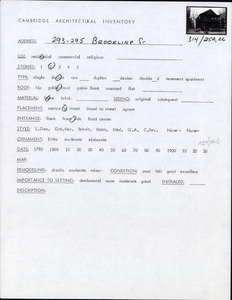 CAMBRIDGE ARCHITECTURAL INVENTORY
ADDRESS: 293-295 BROOKLINE ST
314/25A.26
USE: residential commercial religious
STORIES: 1 2 3 4 5
TYPE: single row duplex decker double d. tenement apartment
ROOF: hip gable front gable flank mansard flat
MATERIAL: brick SIDING: original subsequent
PLACEMENT: narrow street broad to street square
ENTRANCE: flank front center
STYLE:
ORNAMENT: little moderate elaborate
DATE: 1790 1800 10 20 30 40 50 60 70 80 90 1900 20 30
MAP:
REMODELING: drastic moderate minor CONDITION: poor fair good excellent
IMPORTANCE TO SETTING: detrimental none moderate great INITIALED:
DESCRIPTION: